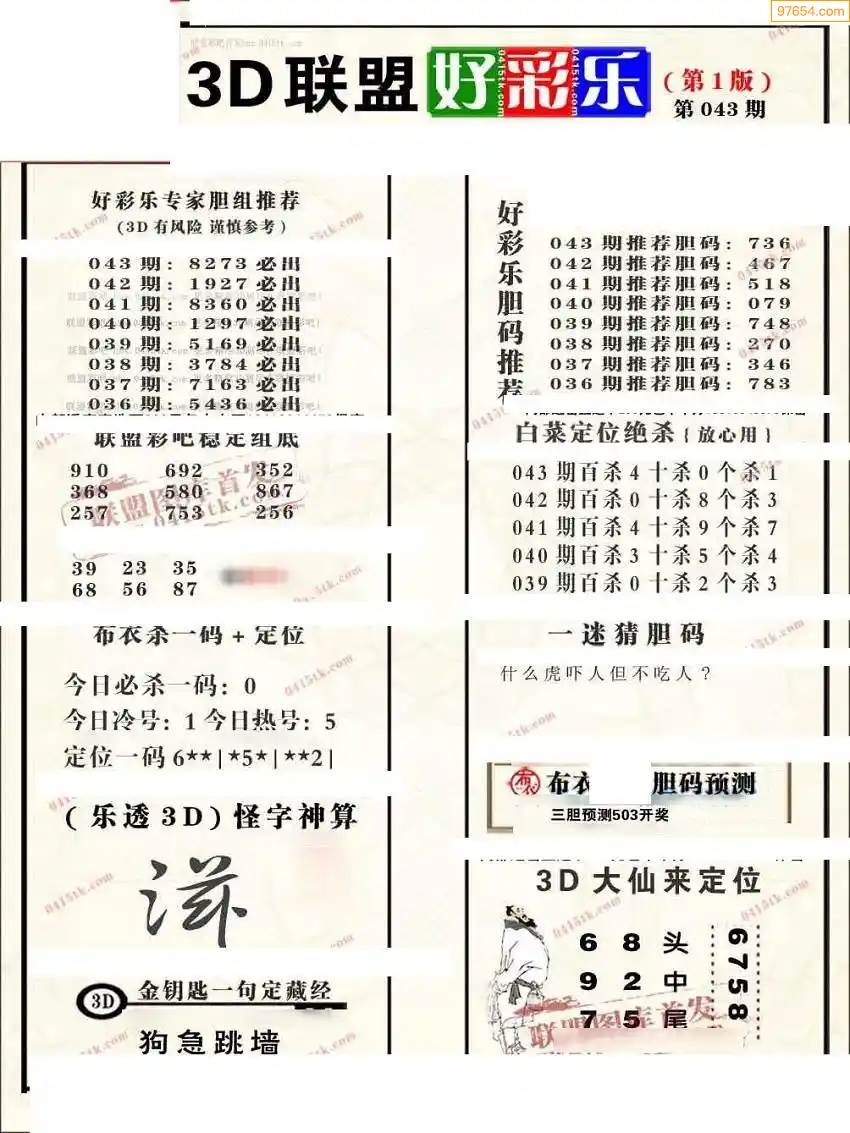 97654.com
3D联盟好彩乐
(第1版)
第043期
好彩乐专家胆组推荐
(3D有风险 谨慎参考)
043期: 8273必出
042期: 1927必出
041期: 8360必出
040期: 1297必出
039期: 5169必出
038期: 3784必出
037期: 7163必出
036期: 5436必出
联盟彩吧稳定组底
910 692 352
368 580 867
257 753 256
联盟图库首发
0415tk.com
39 23 35
68 56 87
布衣杀一码+定位
今日必杀一码: 0
今日冷号: 1 今日热号: 5
定位一码 6**|*5*|**2|
(乐透3D)怪字神算
滋
3D 金钥匙一句定藏经
狗急跳墙
好彩乐胆码推荐
043期推荐胆码: 736
042期推荐胆码: 467
041期推荐胆码: 518
040期推荐胆码: 079
039期推荐胆码: 748
038期推荐胆码: 270
037期推荐胆码: 346
036期推荐胆码: 783
白菜定位绝杀{放心用}
043期百杀4十杀0个杀1
042期百杀0十杀8个杀3
041期百杀4十杀9个杀7
040期百杀3十杀5个杀4
039期百杀0十杀2个杀3
一迷猜胆码
什么虎吓人但不吃人?
布衣
布衣 胆码预测
三胆预测503开奖
3D大仙来定位
6 8 头
9 2 中
7 5 尾
6758
联盟图库首发
0415tk.com